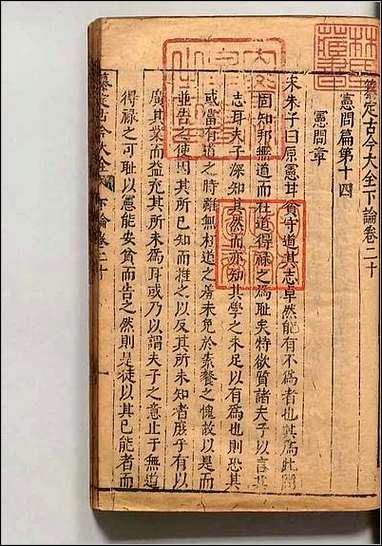 纂定古今大全下論卷二十
憲問篇第十四
憲問章
宋朱子曰原憲甘貧守道其志卓然能有不為者也其為此問
固知邦無道而在道得祿之為恥矣特欲質諸夫子以言其
志耳夫子深知其然而亦知其學之未足以有為也則恐其
或當有道之時雖無枉道之羞未免於素餐之愧故以是而
並告之使因其所已知而推之以及其所未知者庶乎有以
廣其業而益充其所未為耳或乃以謂夫子之意止于無道
得祿之可恥以憲能安貧而告之然則是徒以其已能者而
纂定古今大全 下論卷二十